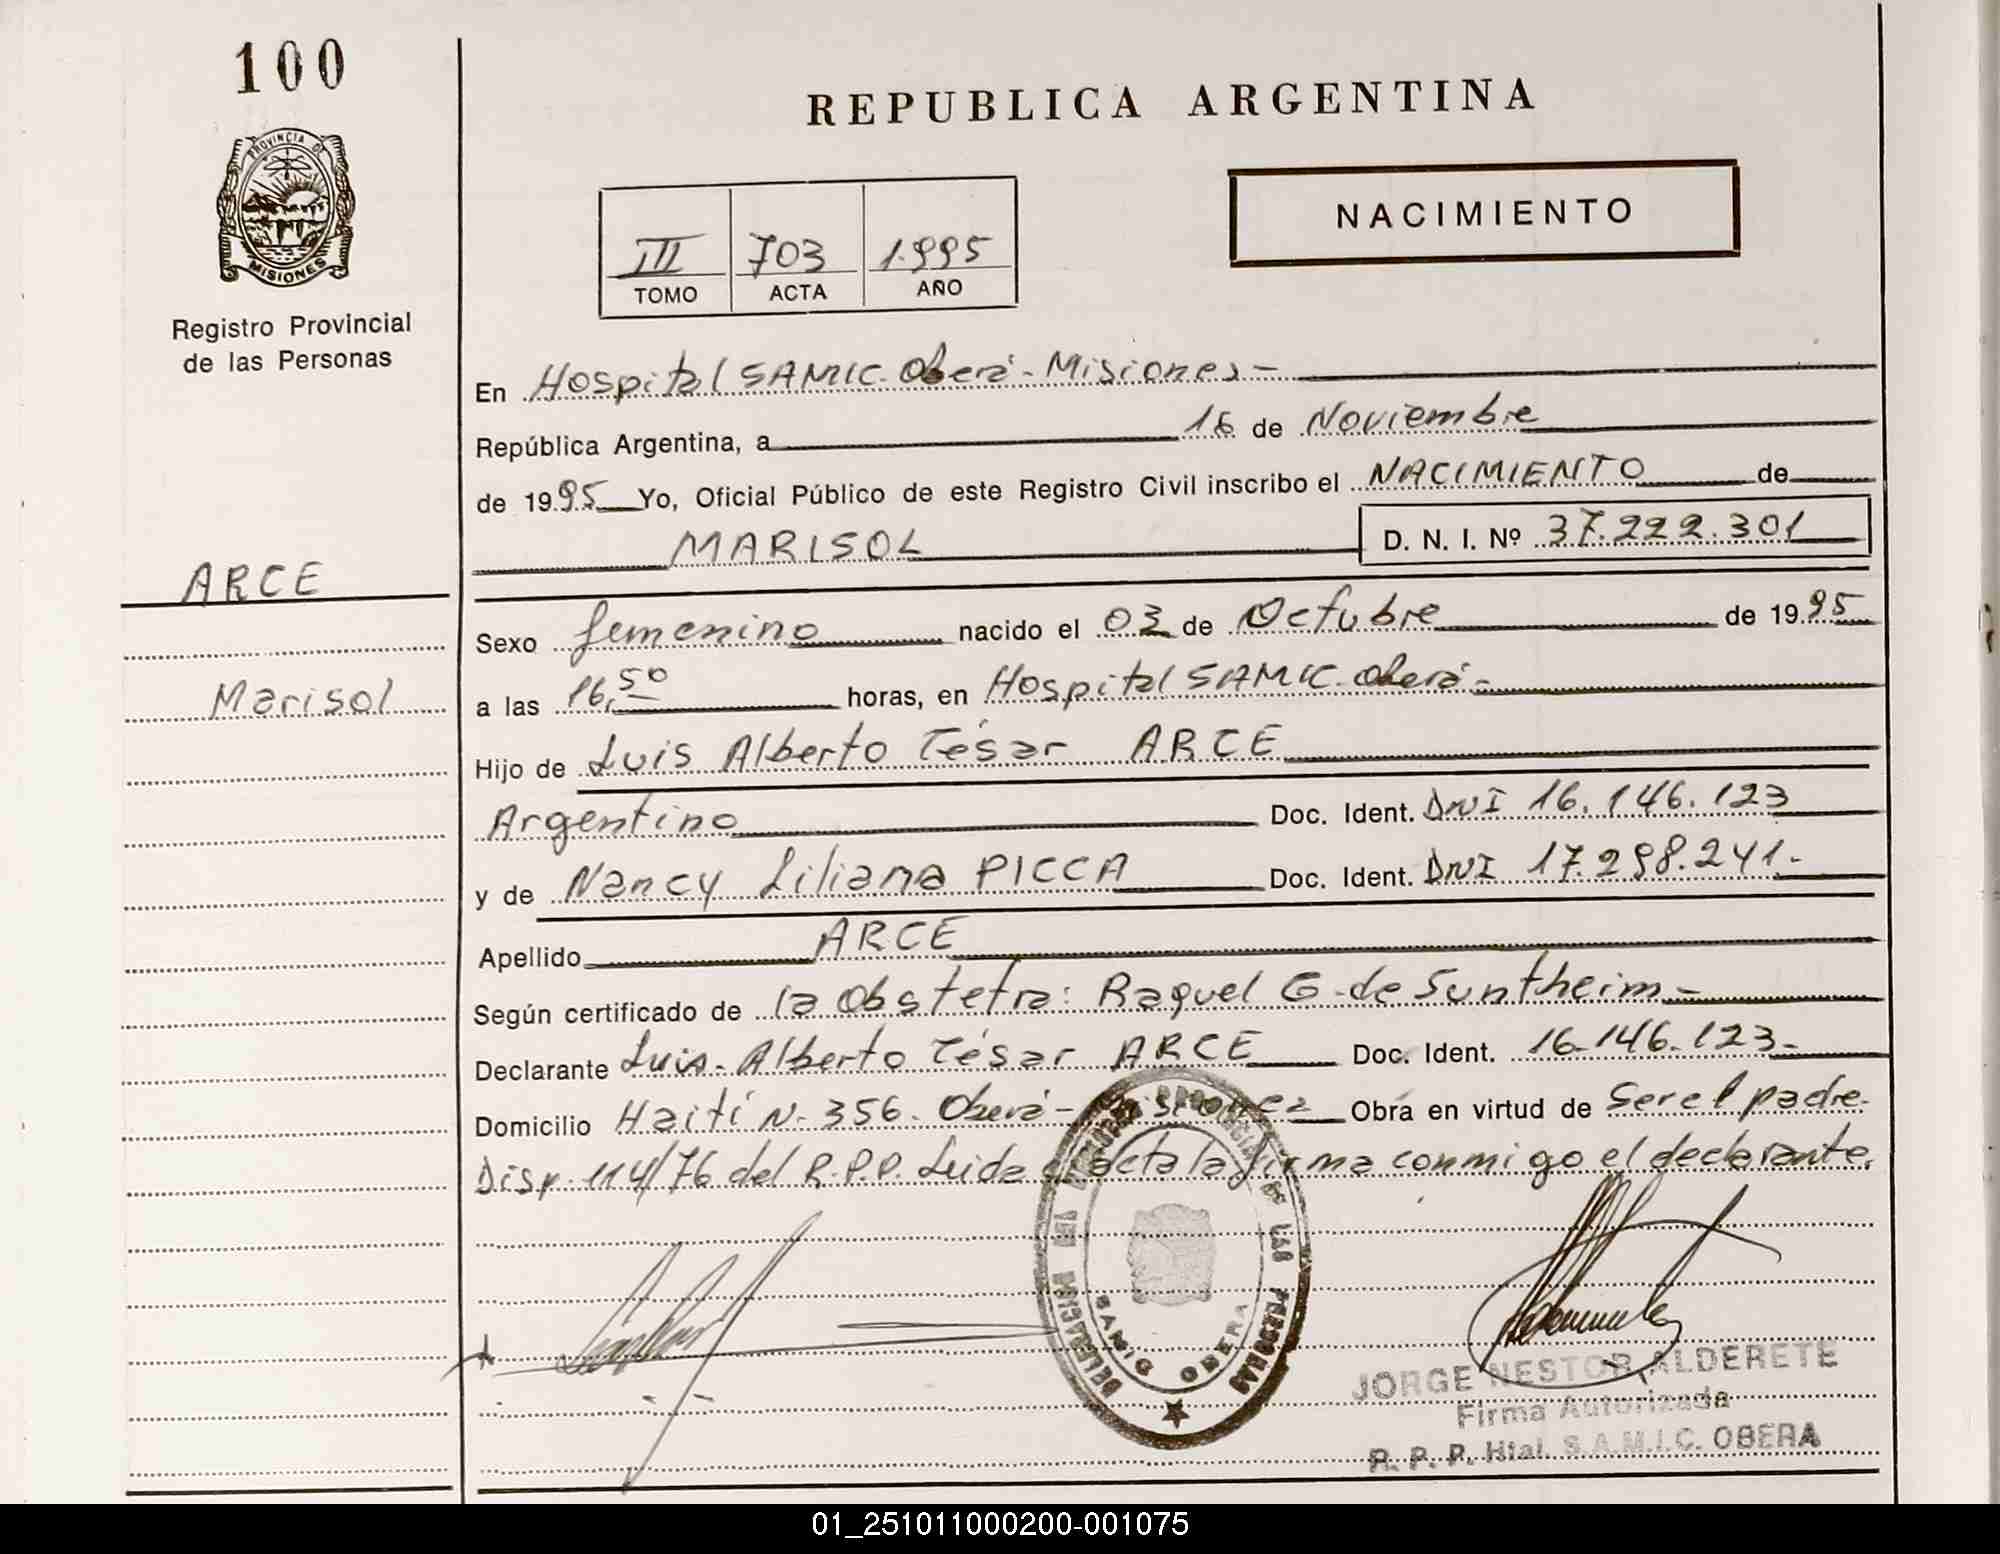 100
PROVINCIA DE
MISIONES
Registro Provincial
de las Personas
REPUBLICA ARGENTINA
III 703 1.995
TOMO ACTA AÑO
NACIMIENTO
En Hospital SAMIC - Oberá - Misiones -
República Argentina, a 16 de Noviembre
de 1995 Yo, Oficial Público de este Registro Civil inscribo el NACIMIENTO de
MARISOL D. N. I. Nº 37.222.301
ARCE
Marisol
Sexo femenino nacido el 03 de Octubre de 1995
a las 16,50 horas, en Hospital SAMIC - Oberá -
Hijo de Luis Alberto César ARCE
Argentino Doc. Ident. DNI 16.146.123
y de Nancy Liliana PICCA Doc. Ident. DNI 17.298.241.-
Apellido ARCE
Según certificado de la Obstetra: Raquel G. de Suntheim -
Declarante Luis - Alberto César ARCE Doc. Ident. 16.146.123.-
Domicilio Haití N. 356 - Oberá - Misiones Obra en virtud de ser el padre.
Disp. 114/76 del R.P.P. Leida el acta la firma conmigo el declarante.
DELEGACION DEL REGISTRO PROVINCIAL DE LAS PERSONAS
OBERA
JORGE NESTOR ALDERETE
Firma Autorizada
R. P. P. Htal. S.A.M.I.C. OBERA
01_251011000200-001075